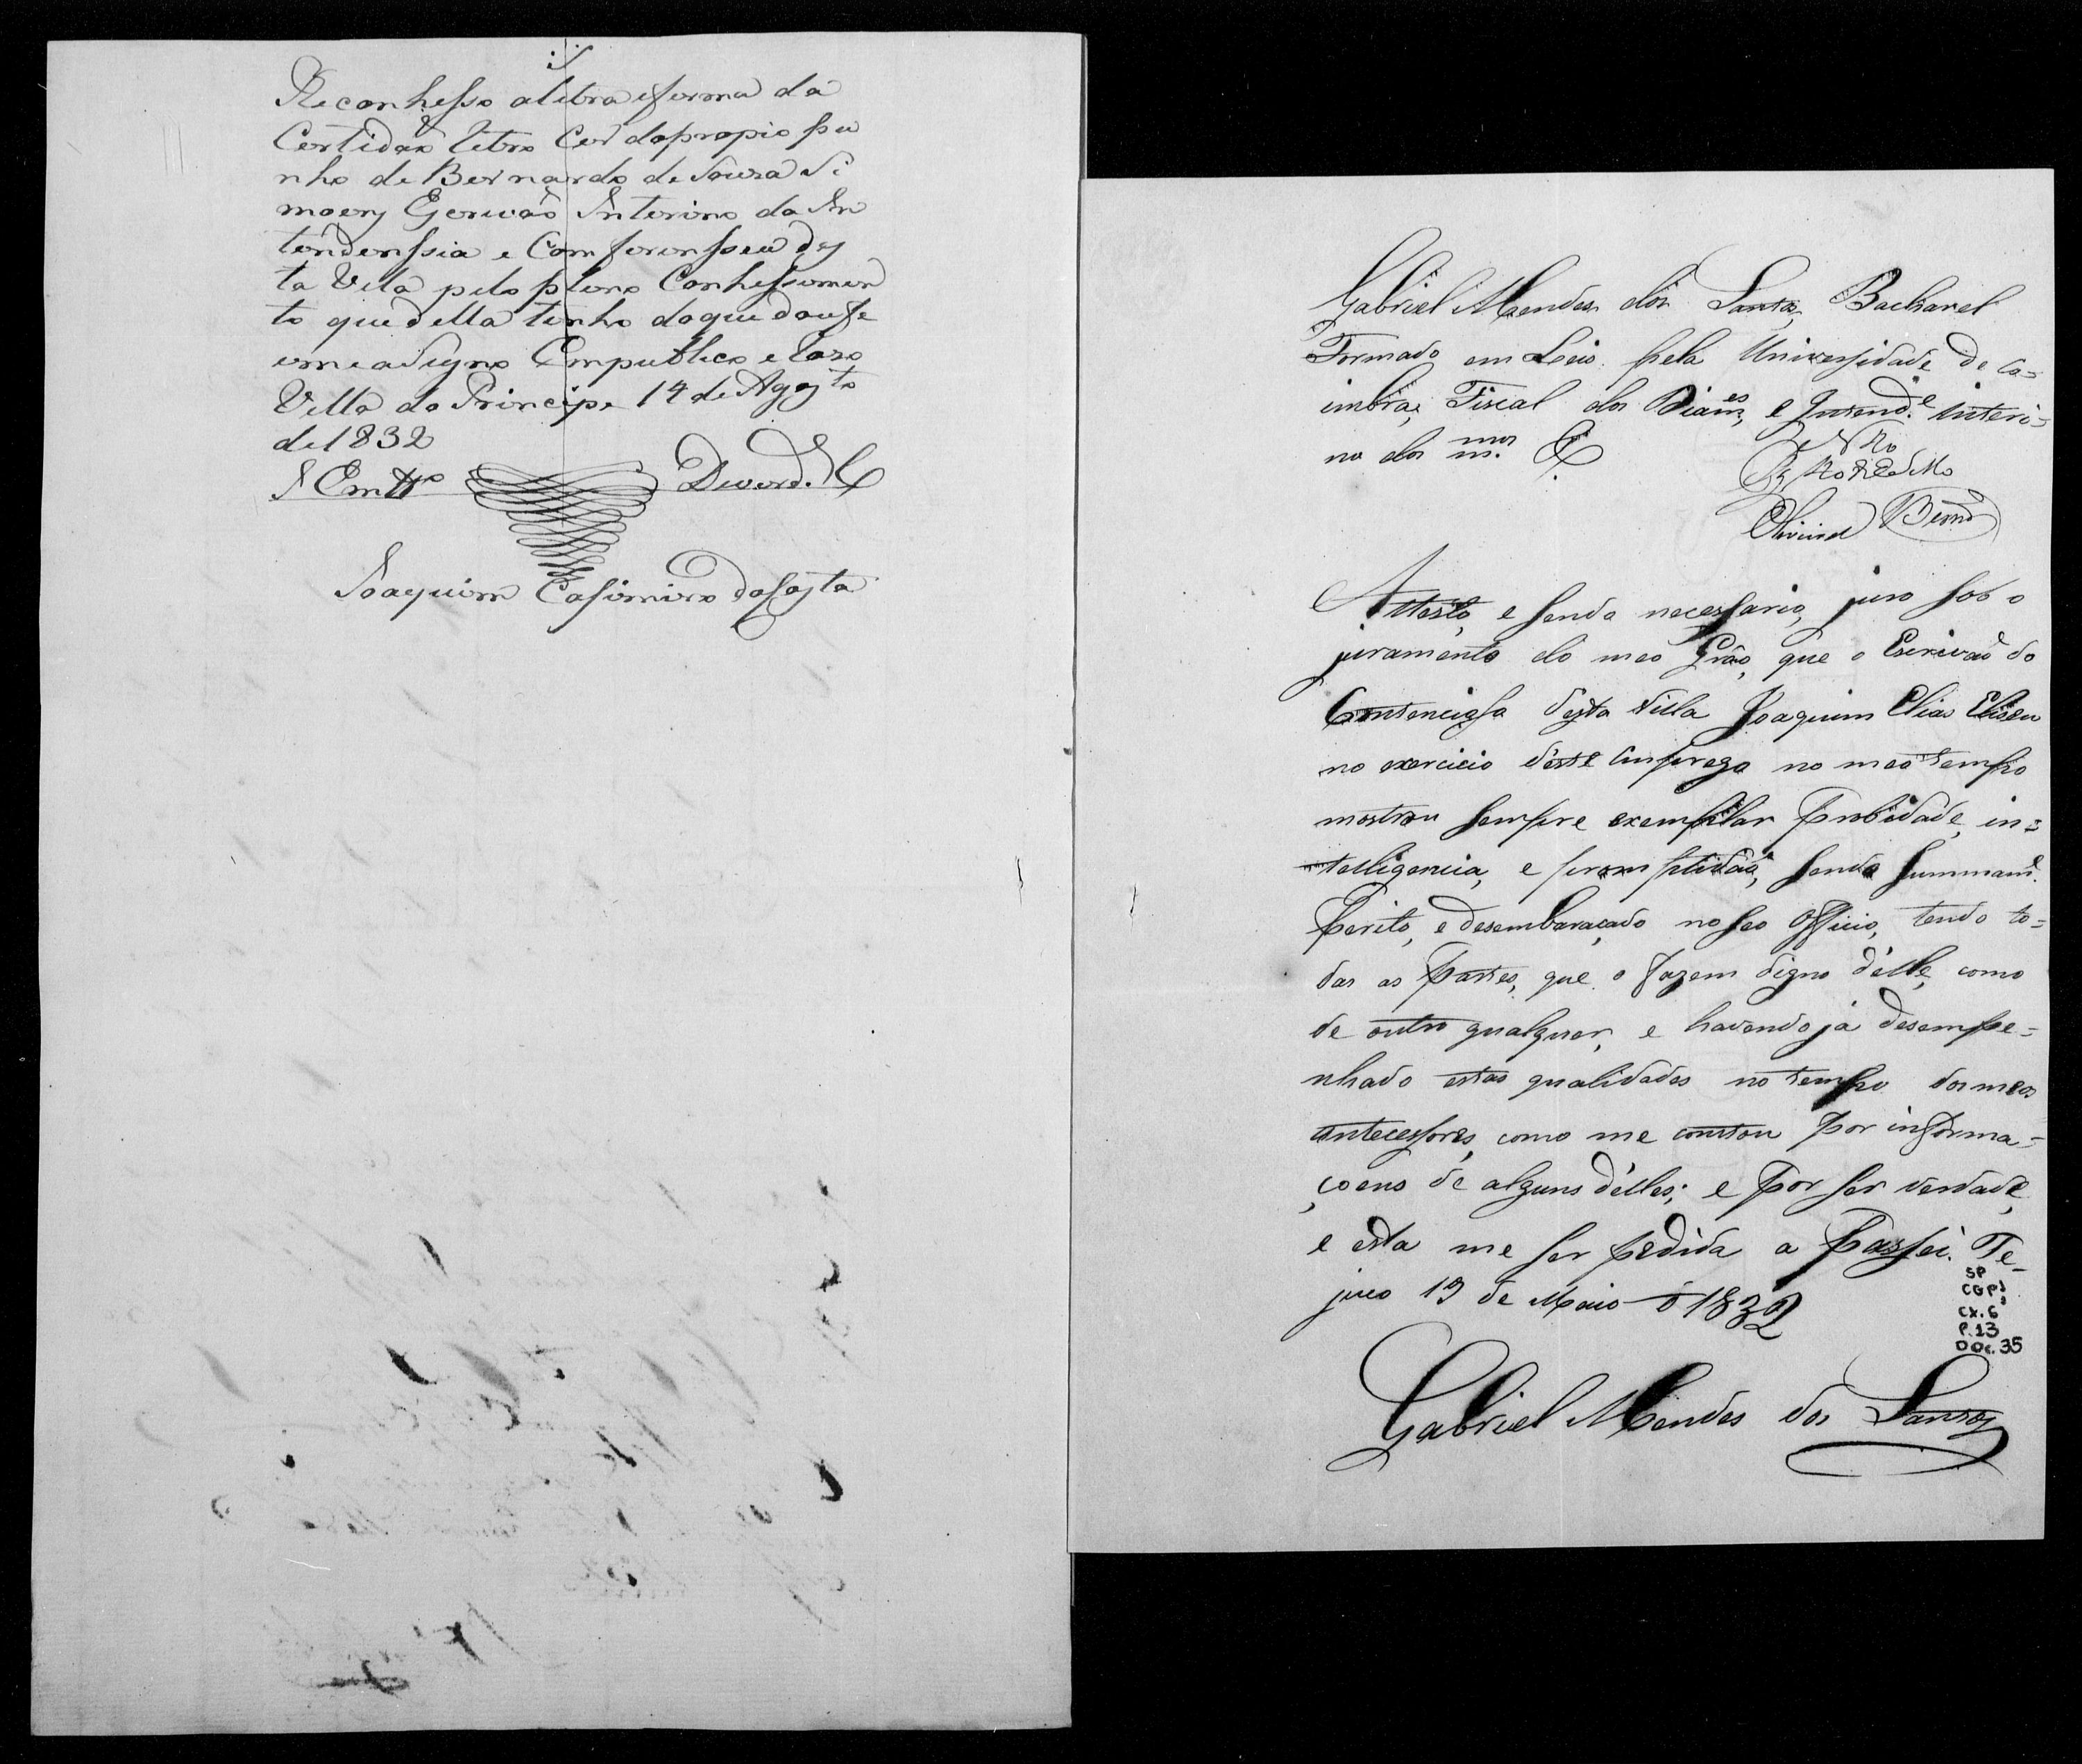 Reconhesso aletra efirma da
Certidaõ retro Ser dopropio pu
nho de Bernardo de Souza Si
moens Escrivaõ Interino da In
tendenssia e Comferenssia des
ta Villa pelo pleno Conhessimen
to que della tenho doque dou fe
emeadigno Empublico e Razo
Villa do Principe 14 de Agosto
de 1832
Em Tto de verd.e
Joaquim Casimiro da Costa
Gabriel Mendes dos Santos, Bacharel
Formado em Leis pela Universidade de Co=
imbra, Fiscal dos Diam.es, e Intend.e interi=
no dos m.mos &
N 70
Oliveira Bern.do
Attesto, e sendo necessario, juro sob o
juramento do meo Gráo, que o Escrivaõ do
Contencioso desta Villa Joaquim Elias Eliseu
no exercicio d'este emprego no meo tempo
mostrou sempre exemplar probidade, in=
telligencia, e promptidaõ, sendo summam.e
perito, e desembaraçado no seo Officio, tendo to=
das as partes, que o fazem digno d'elle, como
de outro qualquer, e havendo já desempe=
nhado estas qualidades no tempo dos meos
antecessores, como me constou por informa=
çoens de alguns d'elles; e por ser verdade,
e esta me ser pedida a passei. Te=
juco 19 de Maio d 1832
SP
CGP1
CX.6
P.13
DOC.35
Gabriel Mendes dos Santos